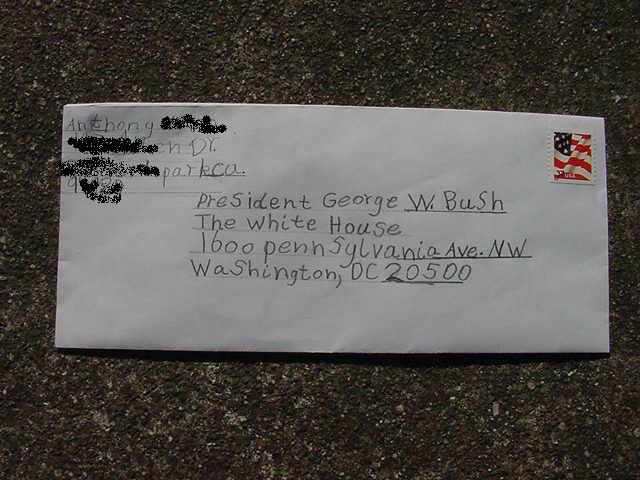 Anthony
Dr.
park ca.
President George W. Bush
The White House
1600 pennsylvania Ave. NW
Washington, DC 20500
USA